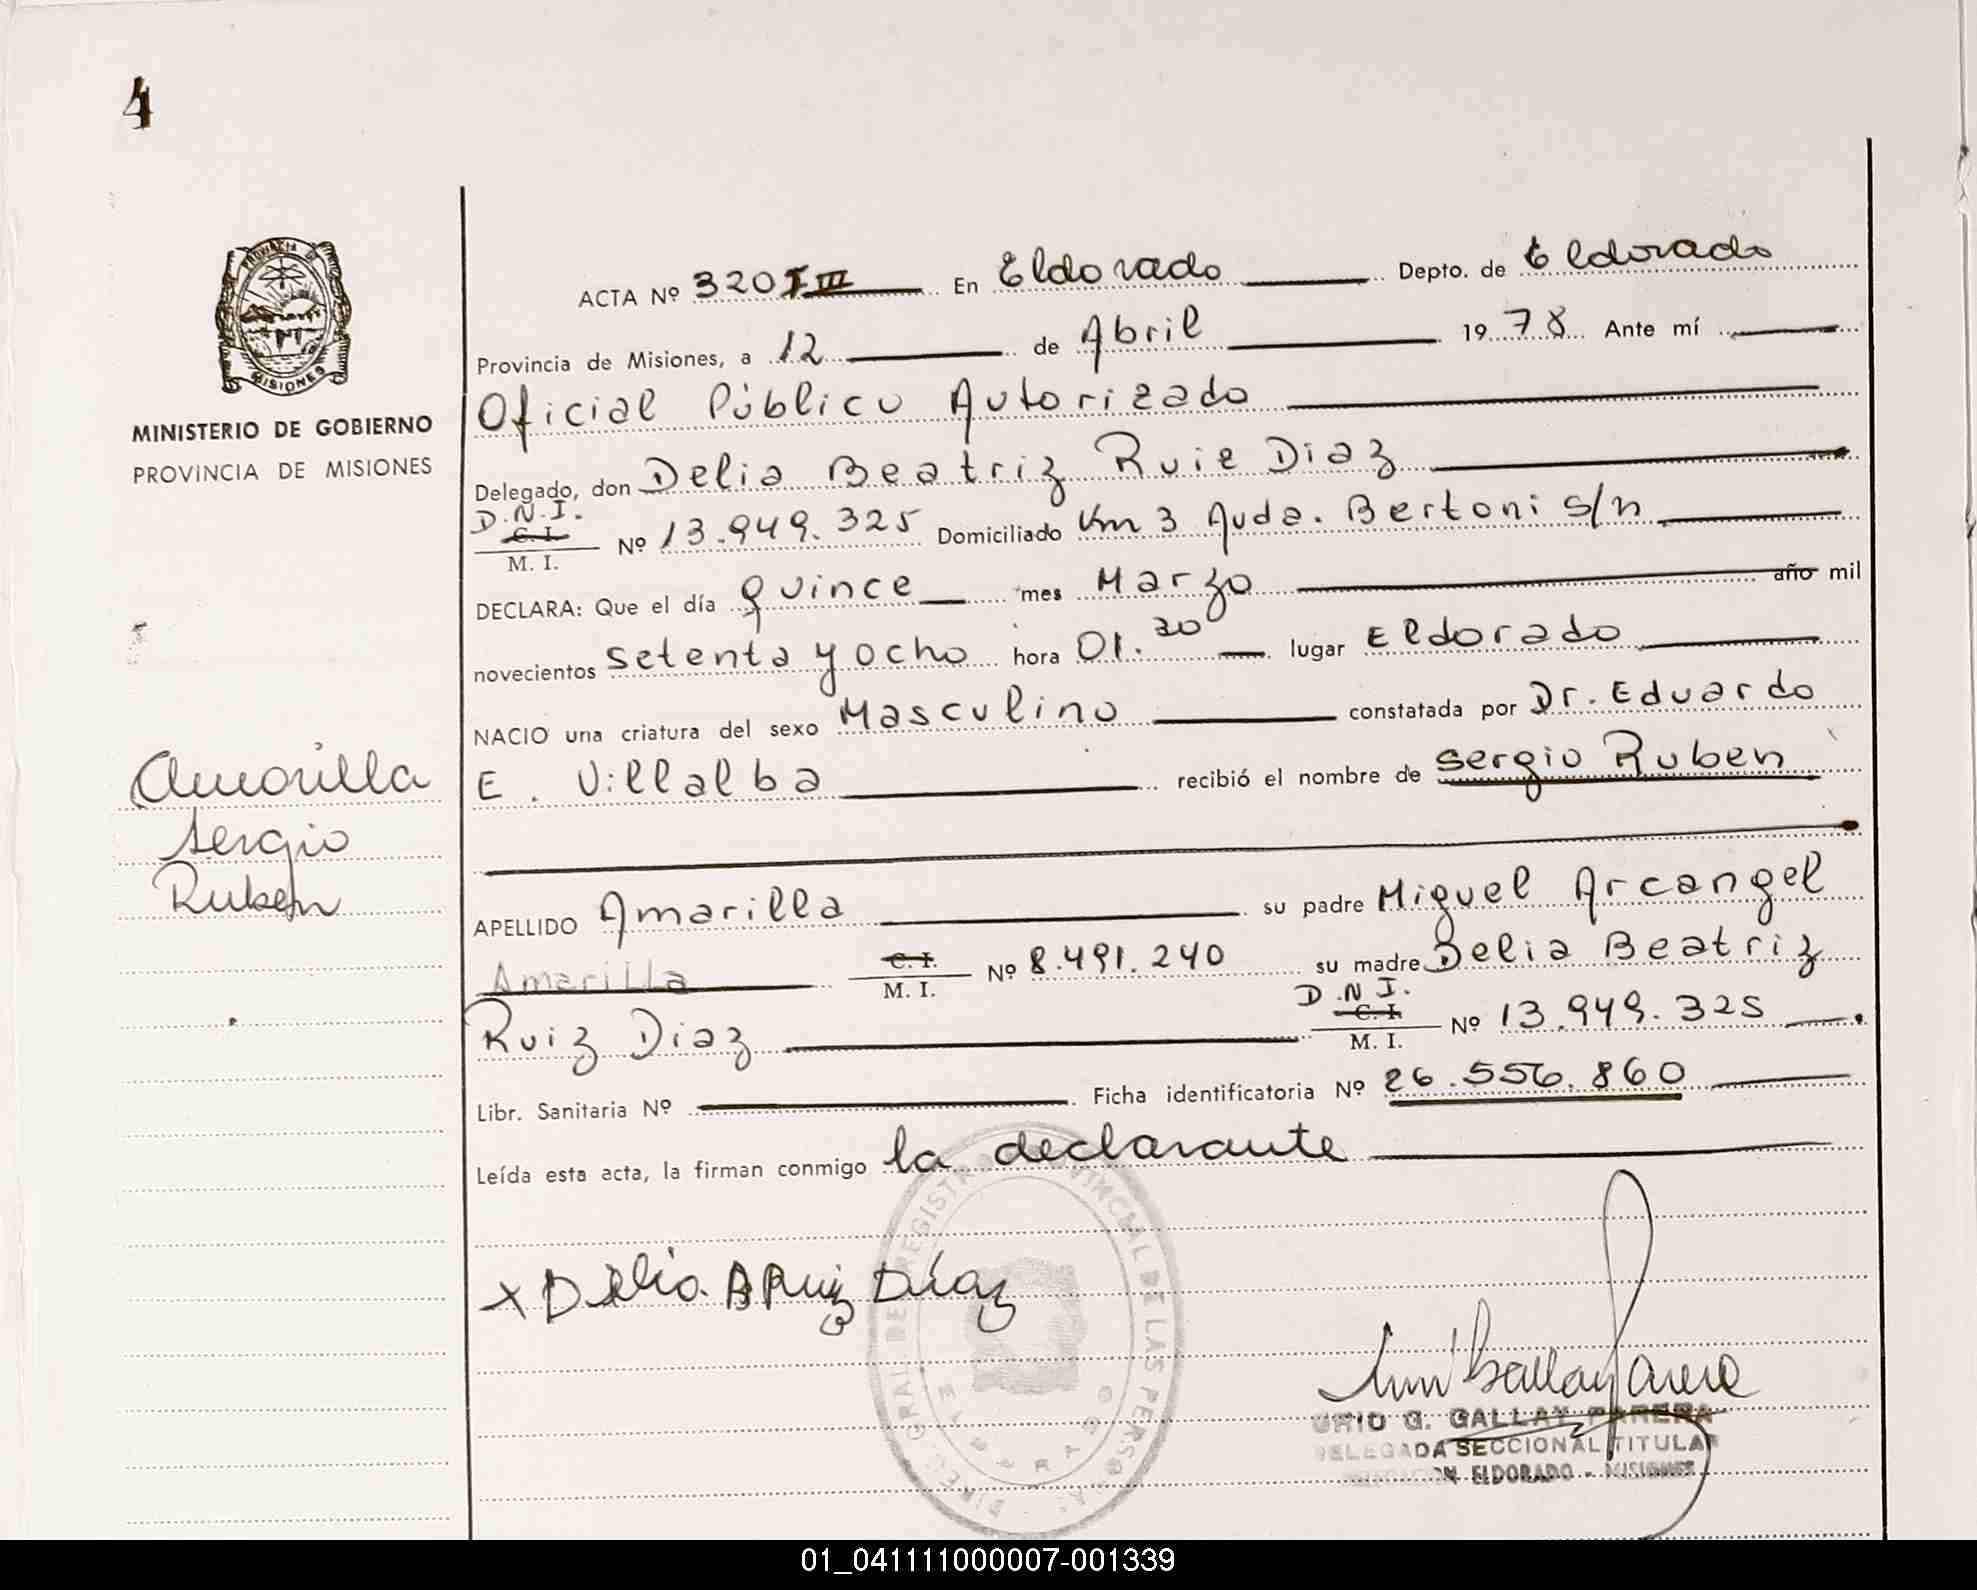 4
PROVINCIA DE
MISIONES
MINISTERIO DE GOBIERNO
PROVINCIA DE MISIONES
Amarilla
Sergio
Ruben
ACTA Nº 320 T III En Eldorado Depto. de Eldorado
Provincia de Misiones, a 12 de Abril 19 78 Ante mí
Oficial Público Autorizado
Delegado, don Delia Beatriz Ruiz Diaz
D.N.I.
C. I.
M. I. Nº 13.949.325 Domiciliado Km 3 Avda. Bertoni s/n
DECLARA: Que el día quince mes Marzo año mil
novecientos setenta y ocho hora 01.30 lugar Eldorado
NACIO una criatura del sexo Masculino constatada por Dr. Eduardo
E. Villalba recibió el nombre de Sergio Ruben
APELLIDO Amarilla su padre Miguel Arcangel
Amarilla C. I. M. I. Nº 8.491.240 su madre Delia Beatriz
Ruiz Diaz D.N.I. C. I. M. I. Nº 13.949.325
Libr. Sanitaria Nº Ficha identificatoria Nº 26.556.860
Leída esta acta, la firman conmigo la declarante
x Delia B Ruiz Díaz
DIREC. GRAL. DE REGISTRO PROVINCIAL DE LAS PERSONAS
ELDORADO
G. GALLAY PARERA
DELEGADA SECCIONAL TITULAR
DELEGACION ELDORADO - MISIONES
01_041111000007-001339